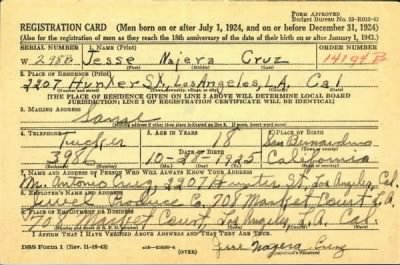 FORM APPROVED
Budget Bureau No. 33-R013-43
REGISTRATION CARD (Men born on or after July 1, 1924, and on or before December 31, 1924)
(Also for the registration of men as they reach the 18th anniversary of the date of their birth on or after January 1, 1943.)
SERIAL NUMBER 1. NAME (Print) ORDER NUMBER
W 298B Jesse Najera Cruz 14199B
2. PLACE OF RESIDENCE (Print)
2207 Hunter St, Los Angeles, L.A. Cal
[THE PLACE OF RESIDENCE GIVEN ON LINE 2 ABOVE WILL DETERMINE LOCAL BOARD
JURISDICTION; LINE 2 OF REGISTRATION CERTIFICATE WILL BE IDENTICAL]
3. MAILING ADDRESS
Same
4. TELEPHONE 5. AGE IN YEARS 6. PLACE OF BIRTH
Tucker 18 San Bernardino
DATE OF BIRTH
3986 10-28-1925 California
7. NAME AND ADDRESS OF PERSON WHO WILL ALWAYS KNOW YOUR ADDRESS
Mr. Antonio Cruz, 2207 Hunter St, Los Angeles, Cal.
Jewel Produce Co. 708 Market Court L.A.
PLACE OF EMPLOYMENT OR BUSINESS
708 Market Court, Los Angeles, L.A. Cal.
I AFFIRM THAT I HAVE VERIFIED ABOVE ANSWERS AND THAT THEY ARE TRUE.
DSS Form 1 (OVER) Jesse Najera Cruz